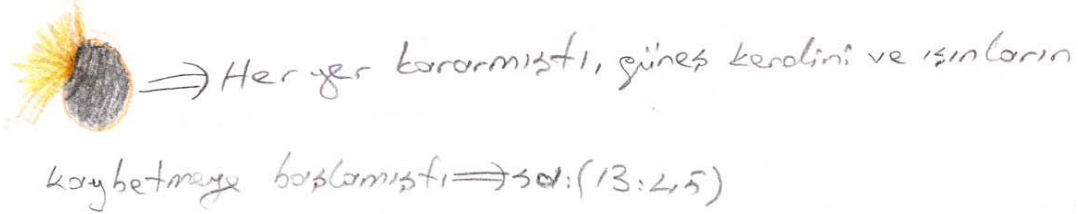 ⇒ Her yer kararmıştı, güneş kendini ve ışınların
kaybetmeye başlamıştı ⇒ sa:(13:45)